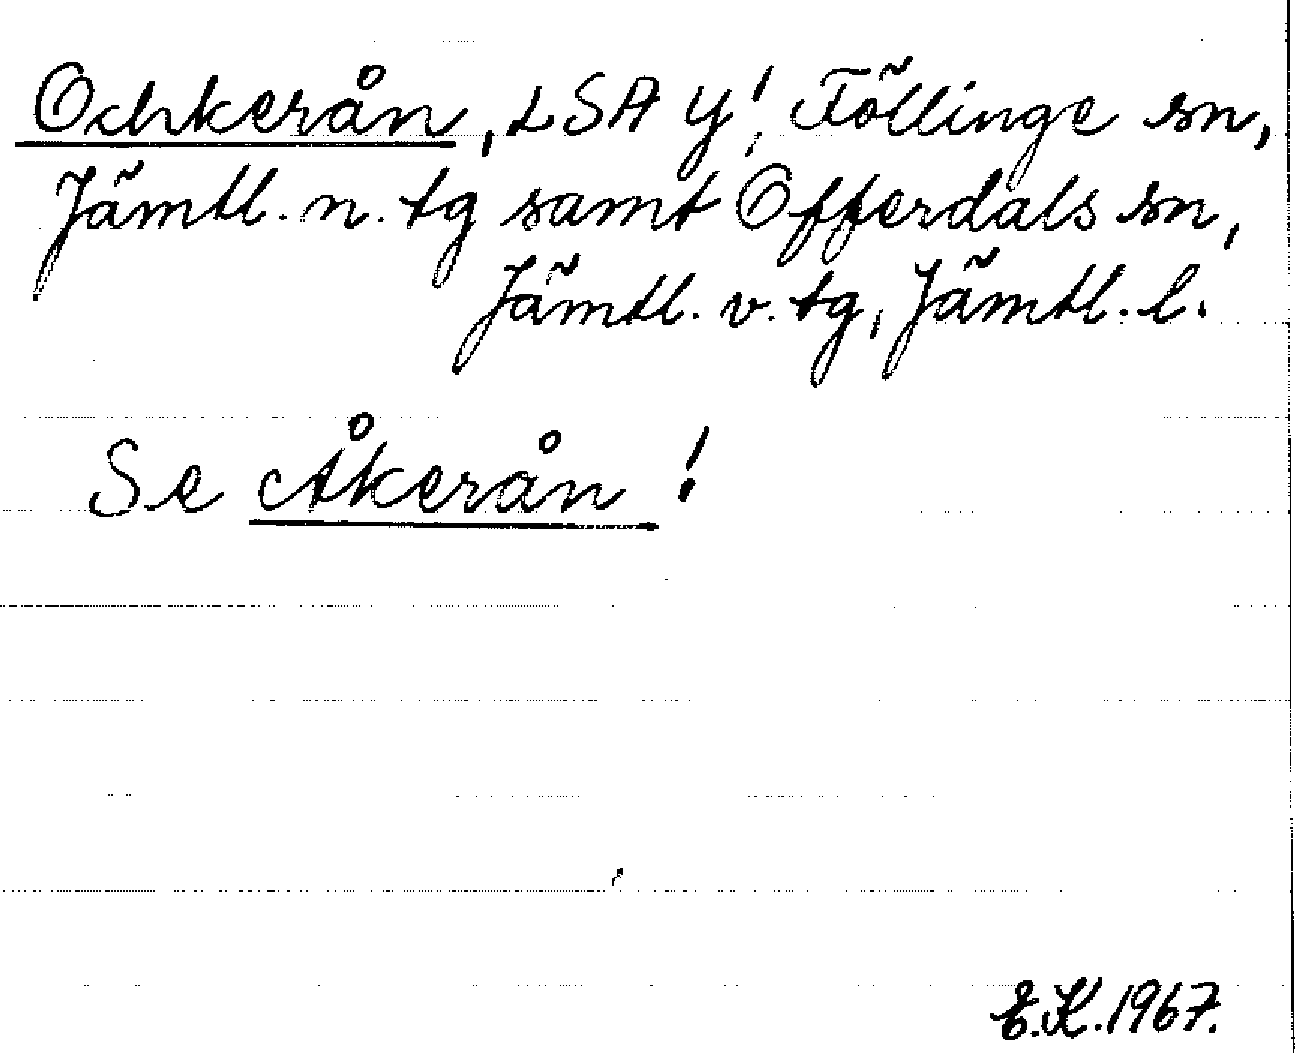 Ochkerån, LSA Y!, Föllinge sn,
Jämtl. n. tg samt Offerdals sn,
Jämtl. v. tg, Jämtl. l.
Se Åkerån!
E.K. 1967.